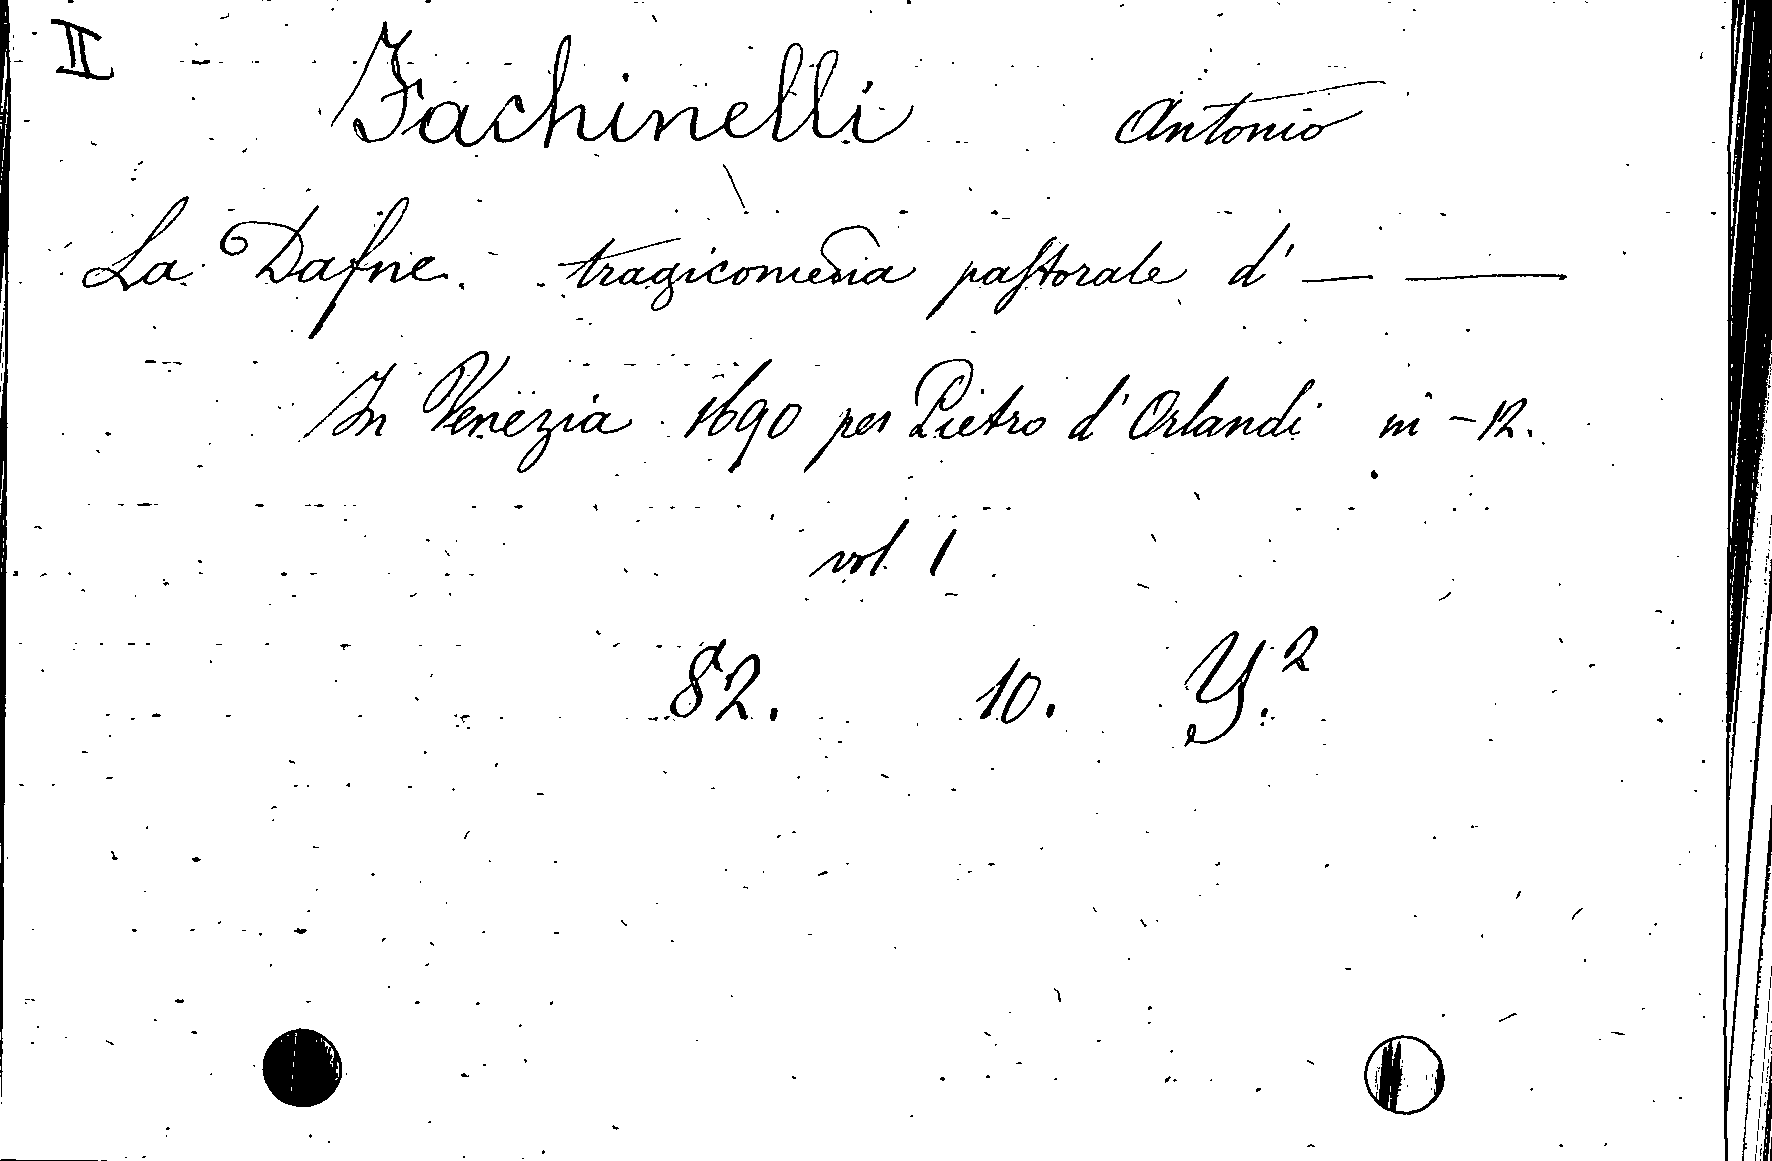 II
Fachinelli Antonio
La Dafne. tragicomedia pastorale d' — —
In Venezia 1690 per Pietro d'Orlandi in-12.
vol. 1
82. 10. Y.²